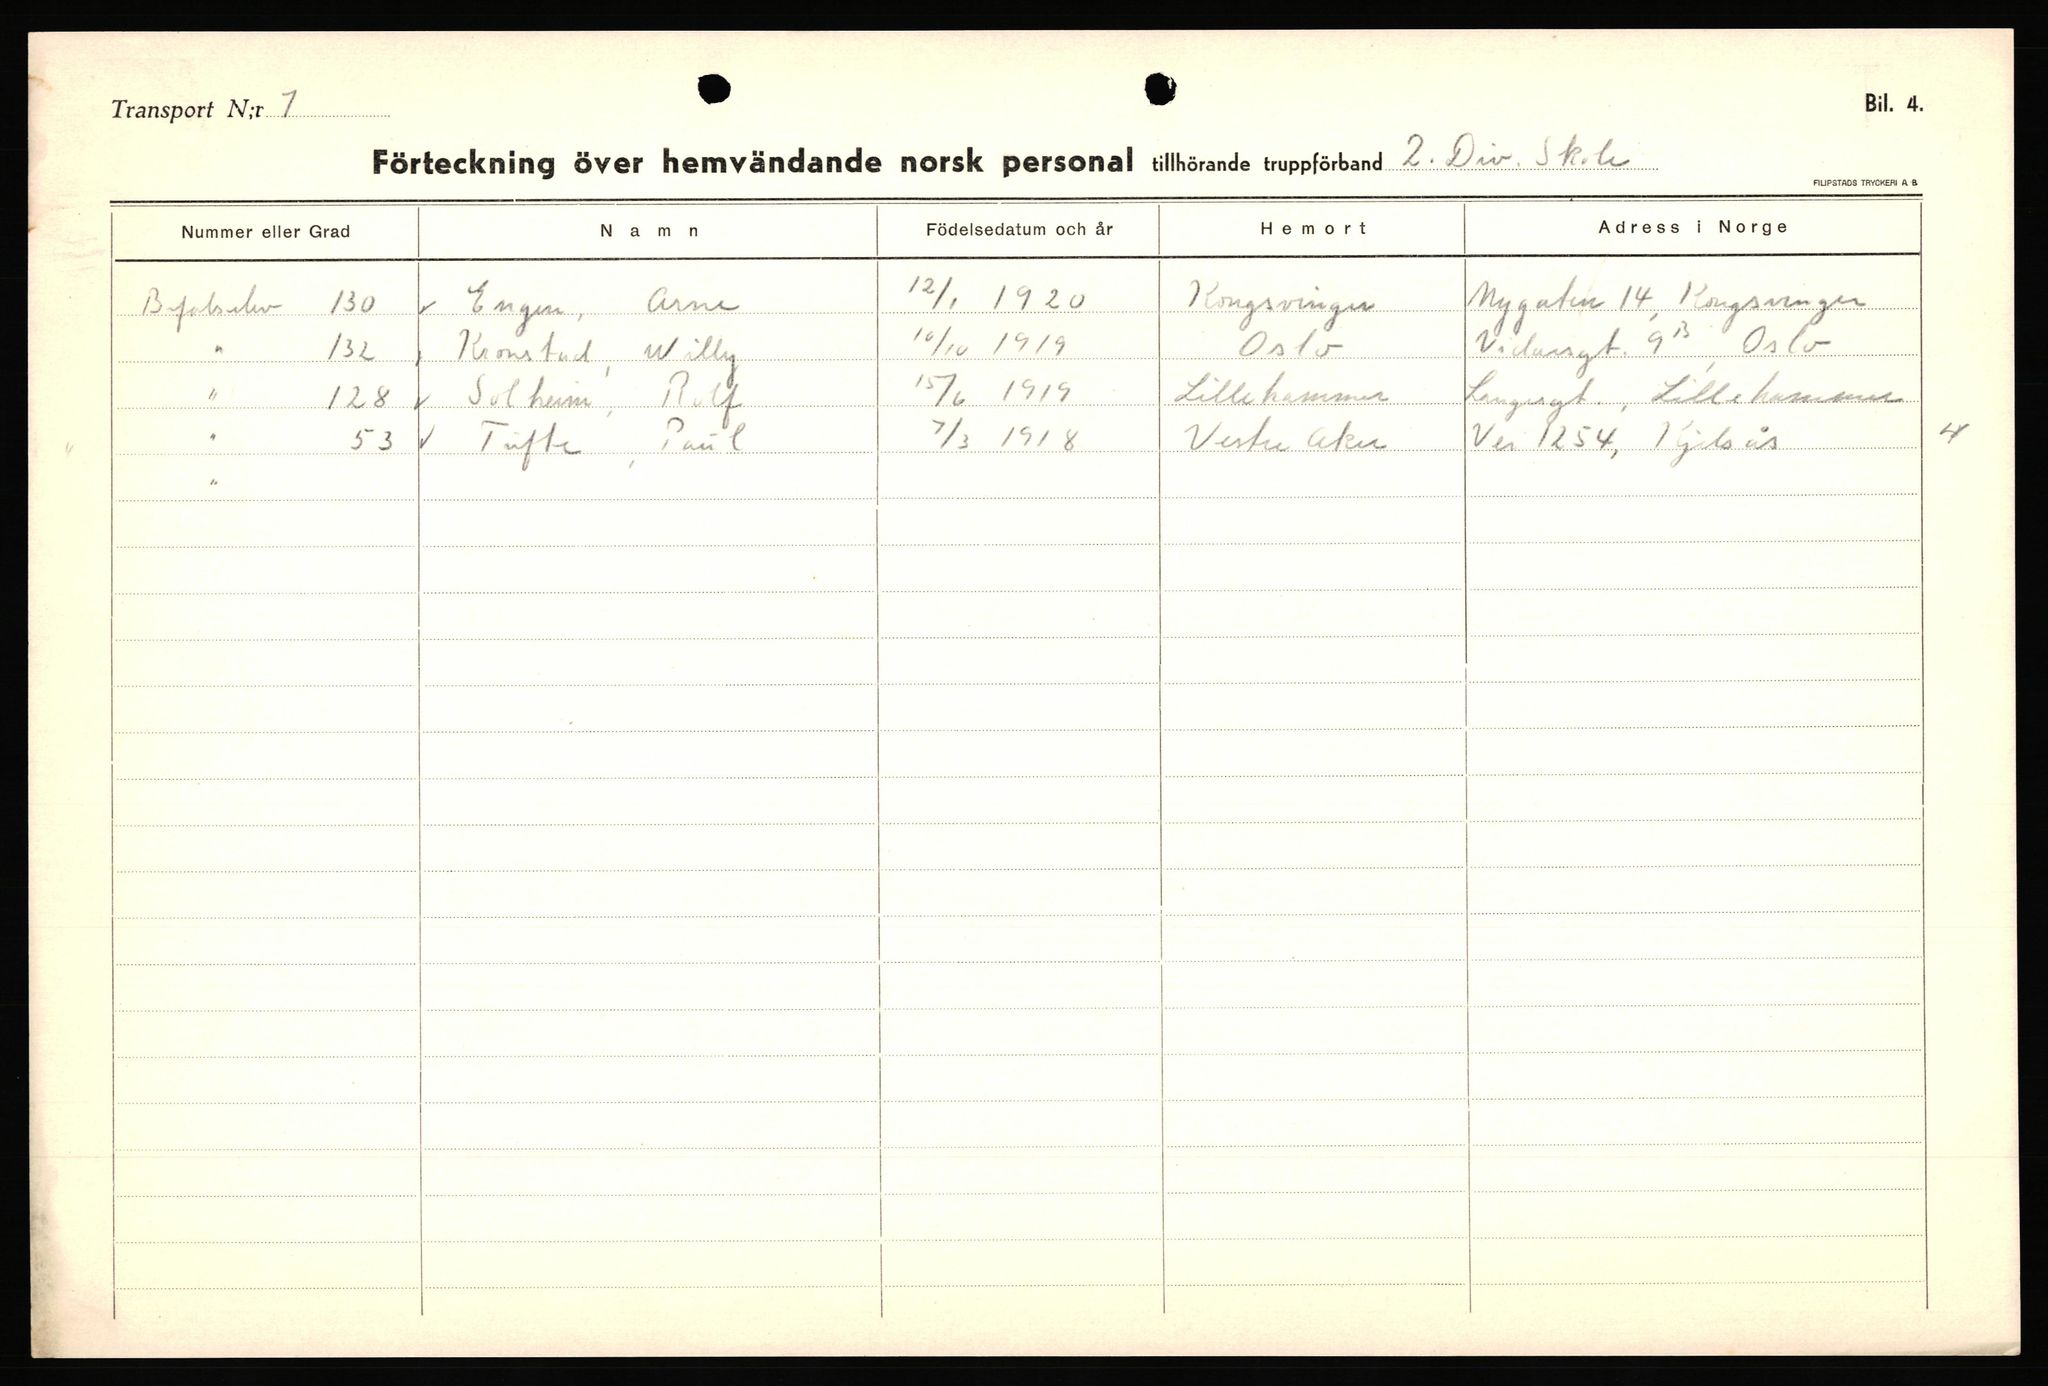 Transport N:r 7
Bil. 4.
Förteckning över hemvändande norsk personal tillhörande truppförband 2. Div. Skole
FILIPSTADS TRYCKERI A B
Nummer eller Grad Namn Födelsedatum och år Hemort Adress i Norge
Befalselev 130 ✓ Engen, Arne 12/1 1920 Kongsvinger Nygaten 14, Kongsvinger
" 132 Kronstad, Willy 10/10 1919 Oslo Vidarsgt. 9B, Oslo
" 128 ✓ Solheim, Rolf 15/6 1919 Lillehammer Langesgt., Lillehammer
" 53 ✓ Tufte, Paul 7/3 1918 Vestre Aker Vei 1254, Kjelsås 4
"